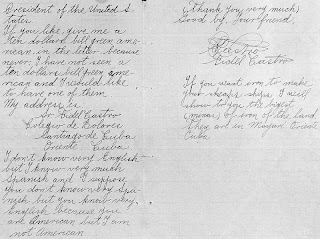 President of the United S-
tates.
If you like, give me a
ten dollars bill green ame-
rican, in the letter, because
never, I have not seen a
ten dollars bill green ame-
rican and I would like
to have one of them.
My address is:
Sr. Fidel Castro
Colegio de Dolores
Santiago de Cuba
Oriente. Cuba.
I don't know very English
but I know very much
Spanish and I suppose
you don't know very Spa-
nish but you know very
English because you
are American but I am
not American
(Thank you very much)
Good by. Your friend,
Fidel Castro
If you want iron to make
your ships I will
show to you the bigest
(minas) of iron of the land.
They are in Mayari Oriente
Cuba.